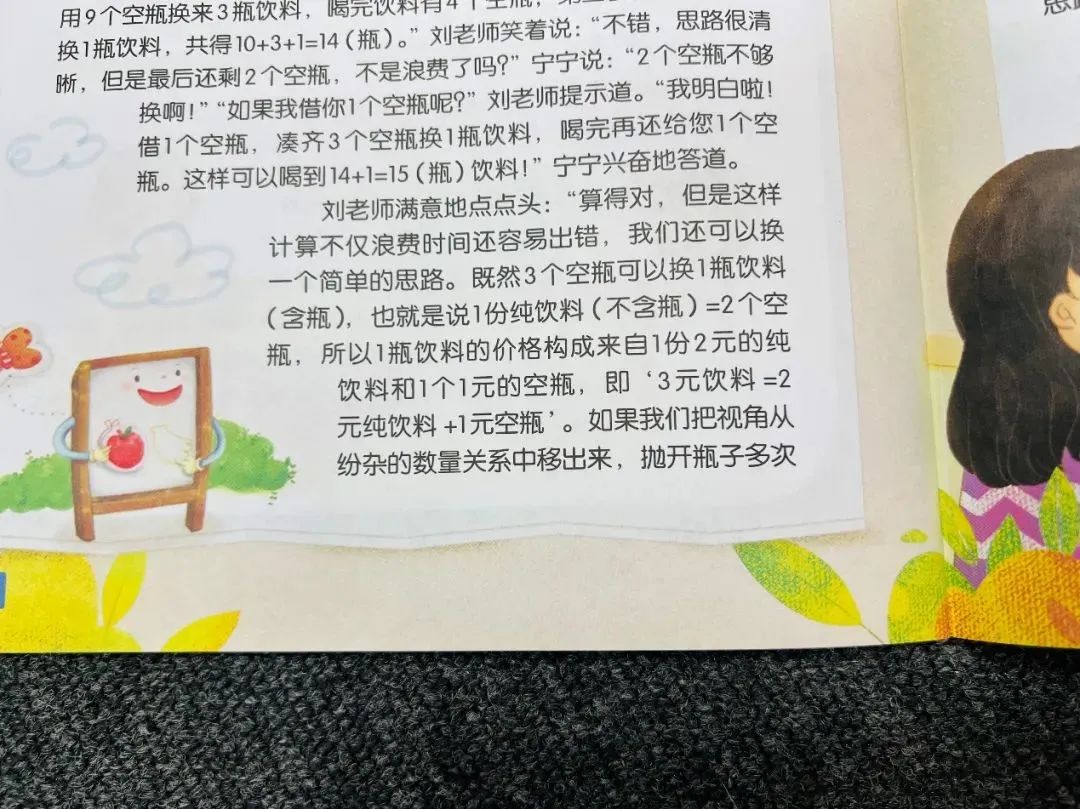 用9个空瓶换来3瓶饮料，喝完饮料有4个空瓶，
换1瓶饮料，共得10+3+1=14（瓶）。”刘老师笑着说：“不错，思路很清
晰，但是最后还剩2个空瓶，不是浪费了吗？”宁宁说：“2个空瓶不够
换啊！”“如果我借你1个空瓶呢？”刘老师提示道。“我明白啦！
借1个空瓶，凑齐3个空瓶换1瓶饮料，喝完再还给您1个空
瓶。这样可以喝到14+1=15（瓶）饮料！”宁宁兴奋地答道。
刘老师满意地点点头：“算得对，但是这样
计算不仅浪费时间还容易出错，我们还可以换
一个简单的思路。既然3个空瓶可以换1瓶饮料
（含瓶），也就是说1份纯饮料（不含瓶）=2个空
瓶，所以1瓶饮料的价格构成来自1份2元的纯
饮料和1个1元的空瓶，即‘3元饮料=2
元纯饮料+1元空瓶’。如果我们把视角从
纷杂的数量关系中移出来，抛开瓶子多次